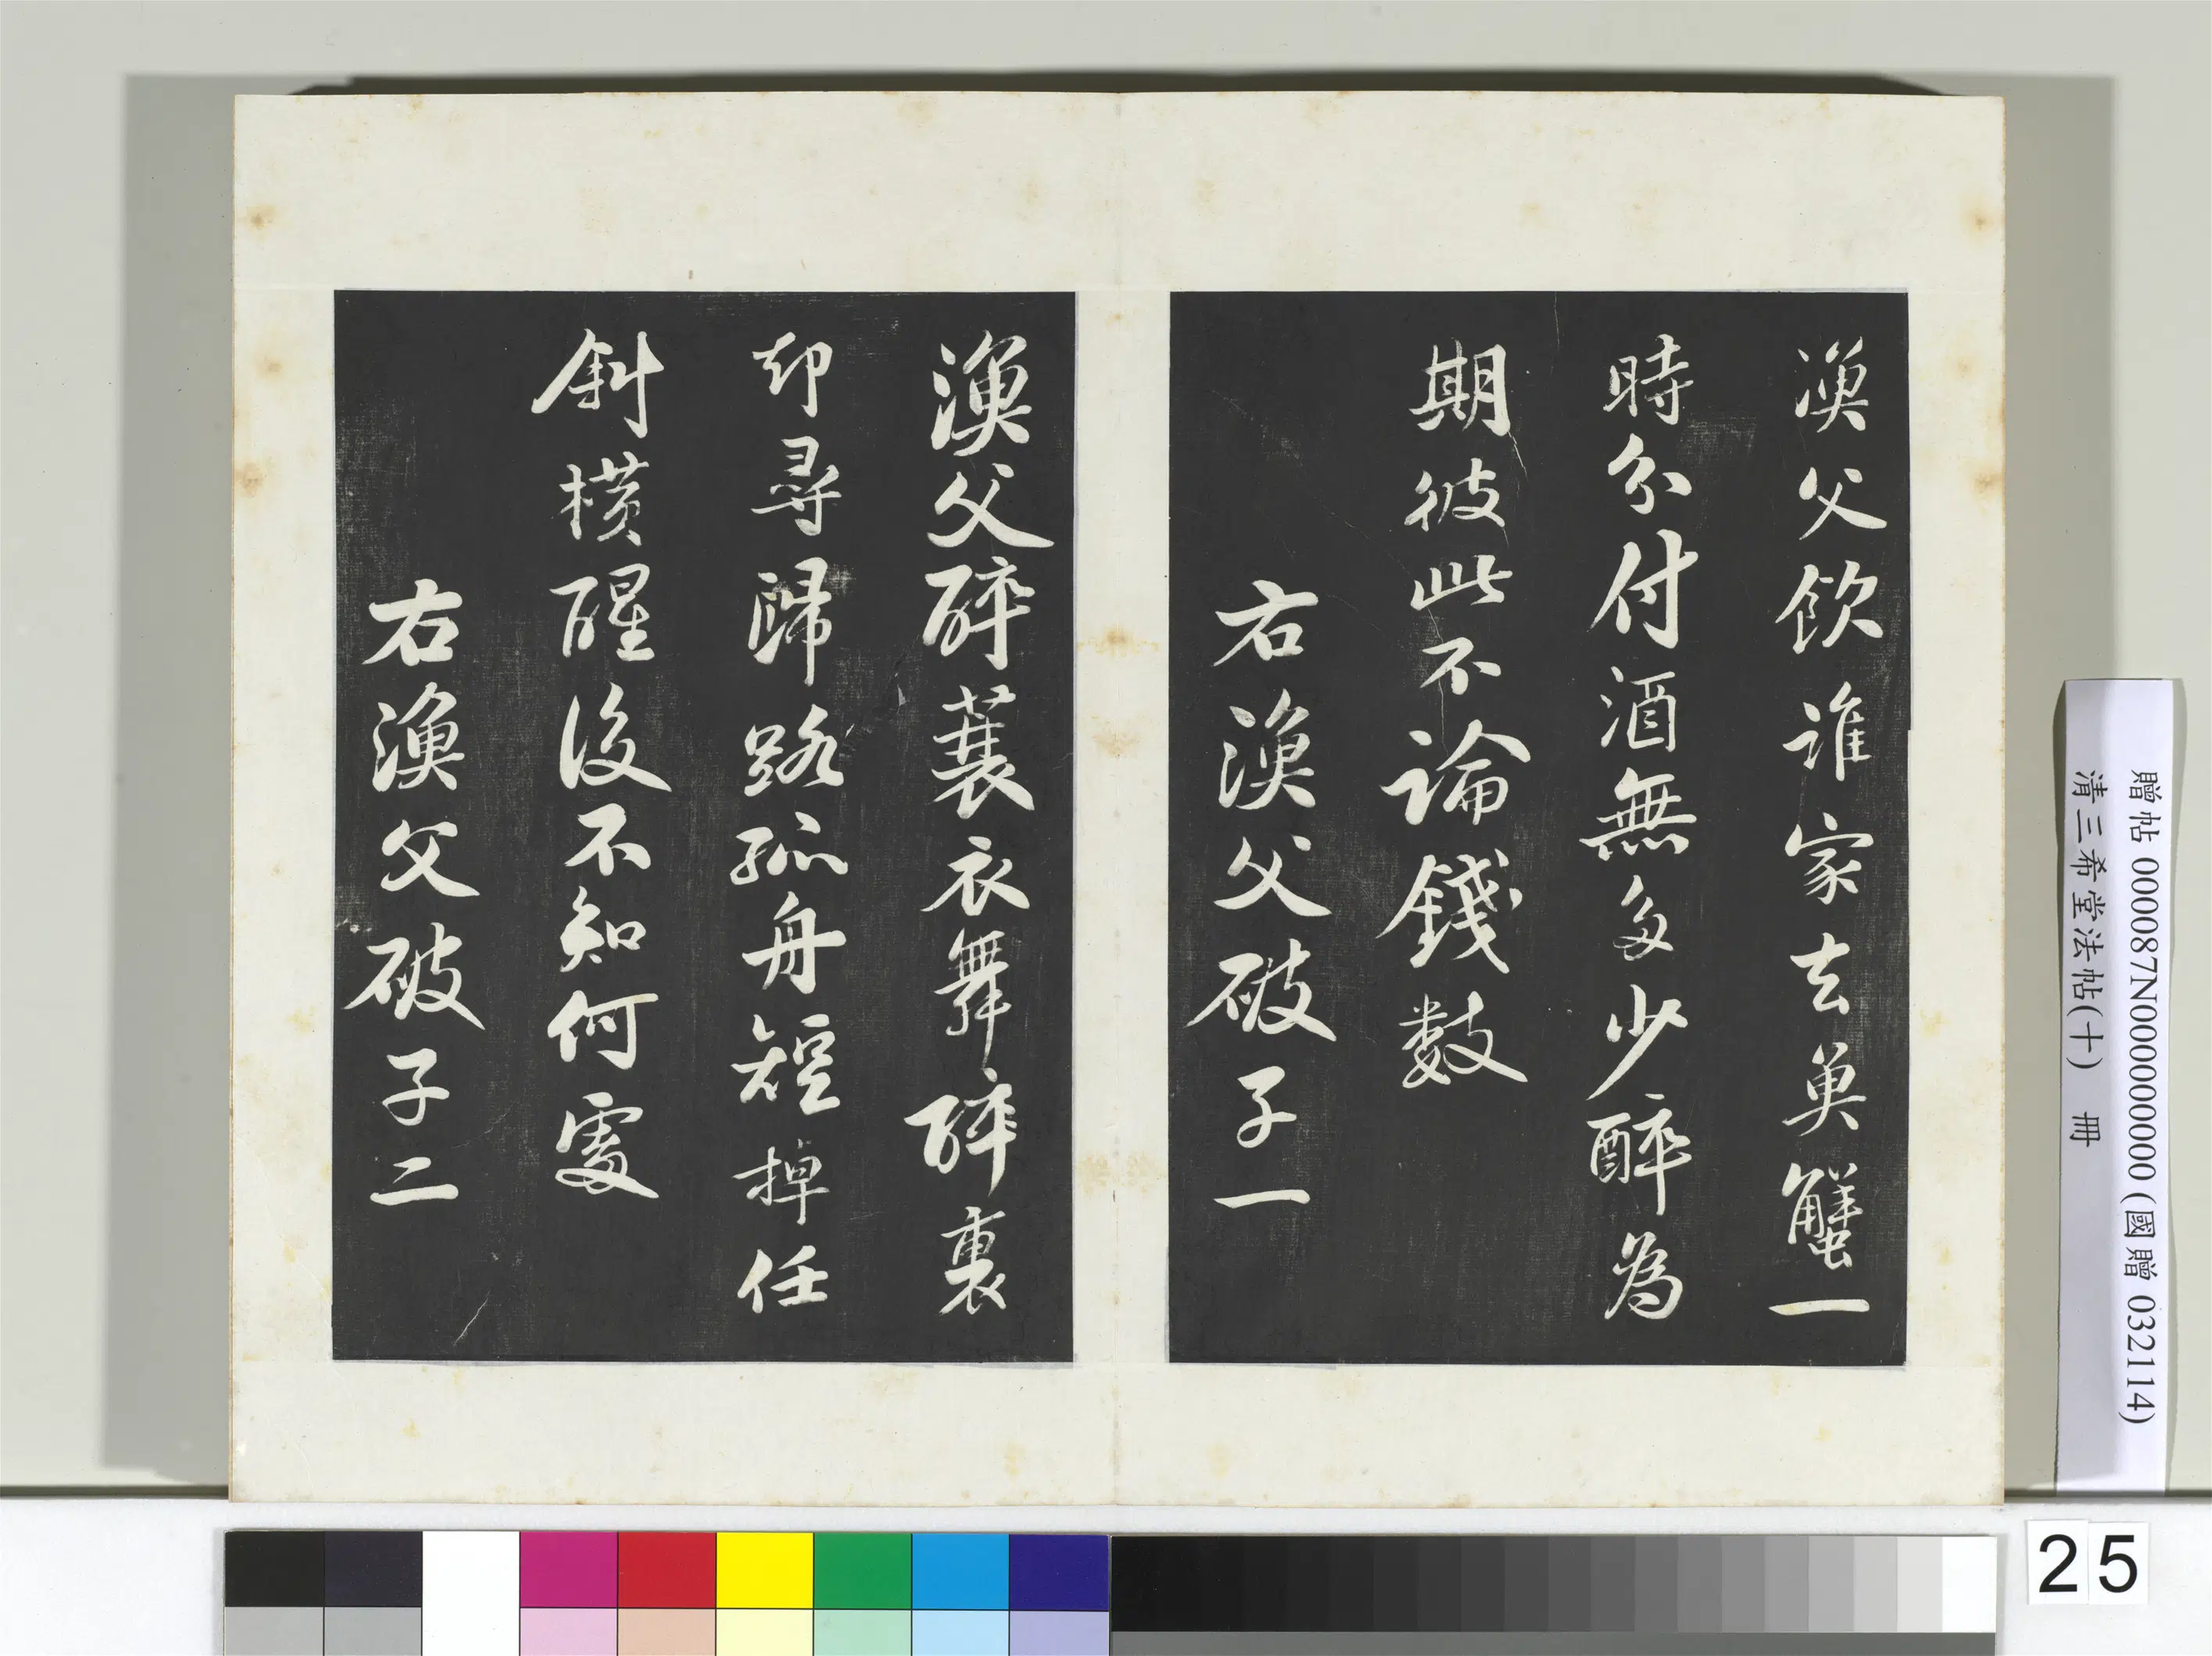 漁父飲誰家去魚蟹一
時分付酒無多少醉為
期彼此不論錢數
右漁父破子一
漁父醉蓑衣舞醉裏
却尋歸路孤舟短棹任
斜橫醒後不知何處
右漁父破子二
贈帖 000087N000000000(國贈 032114)
清三希堂法帖(十) 冊
25